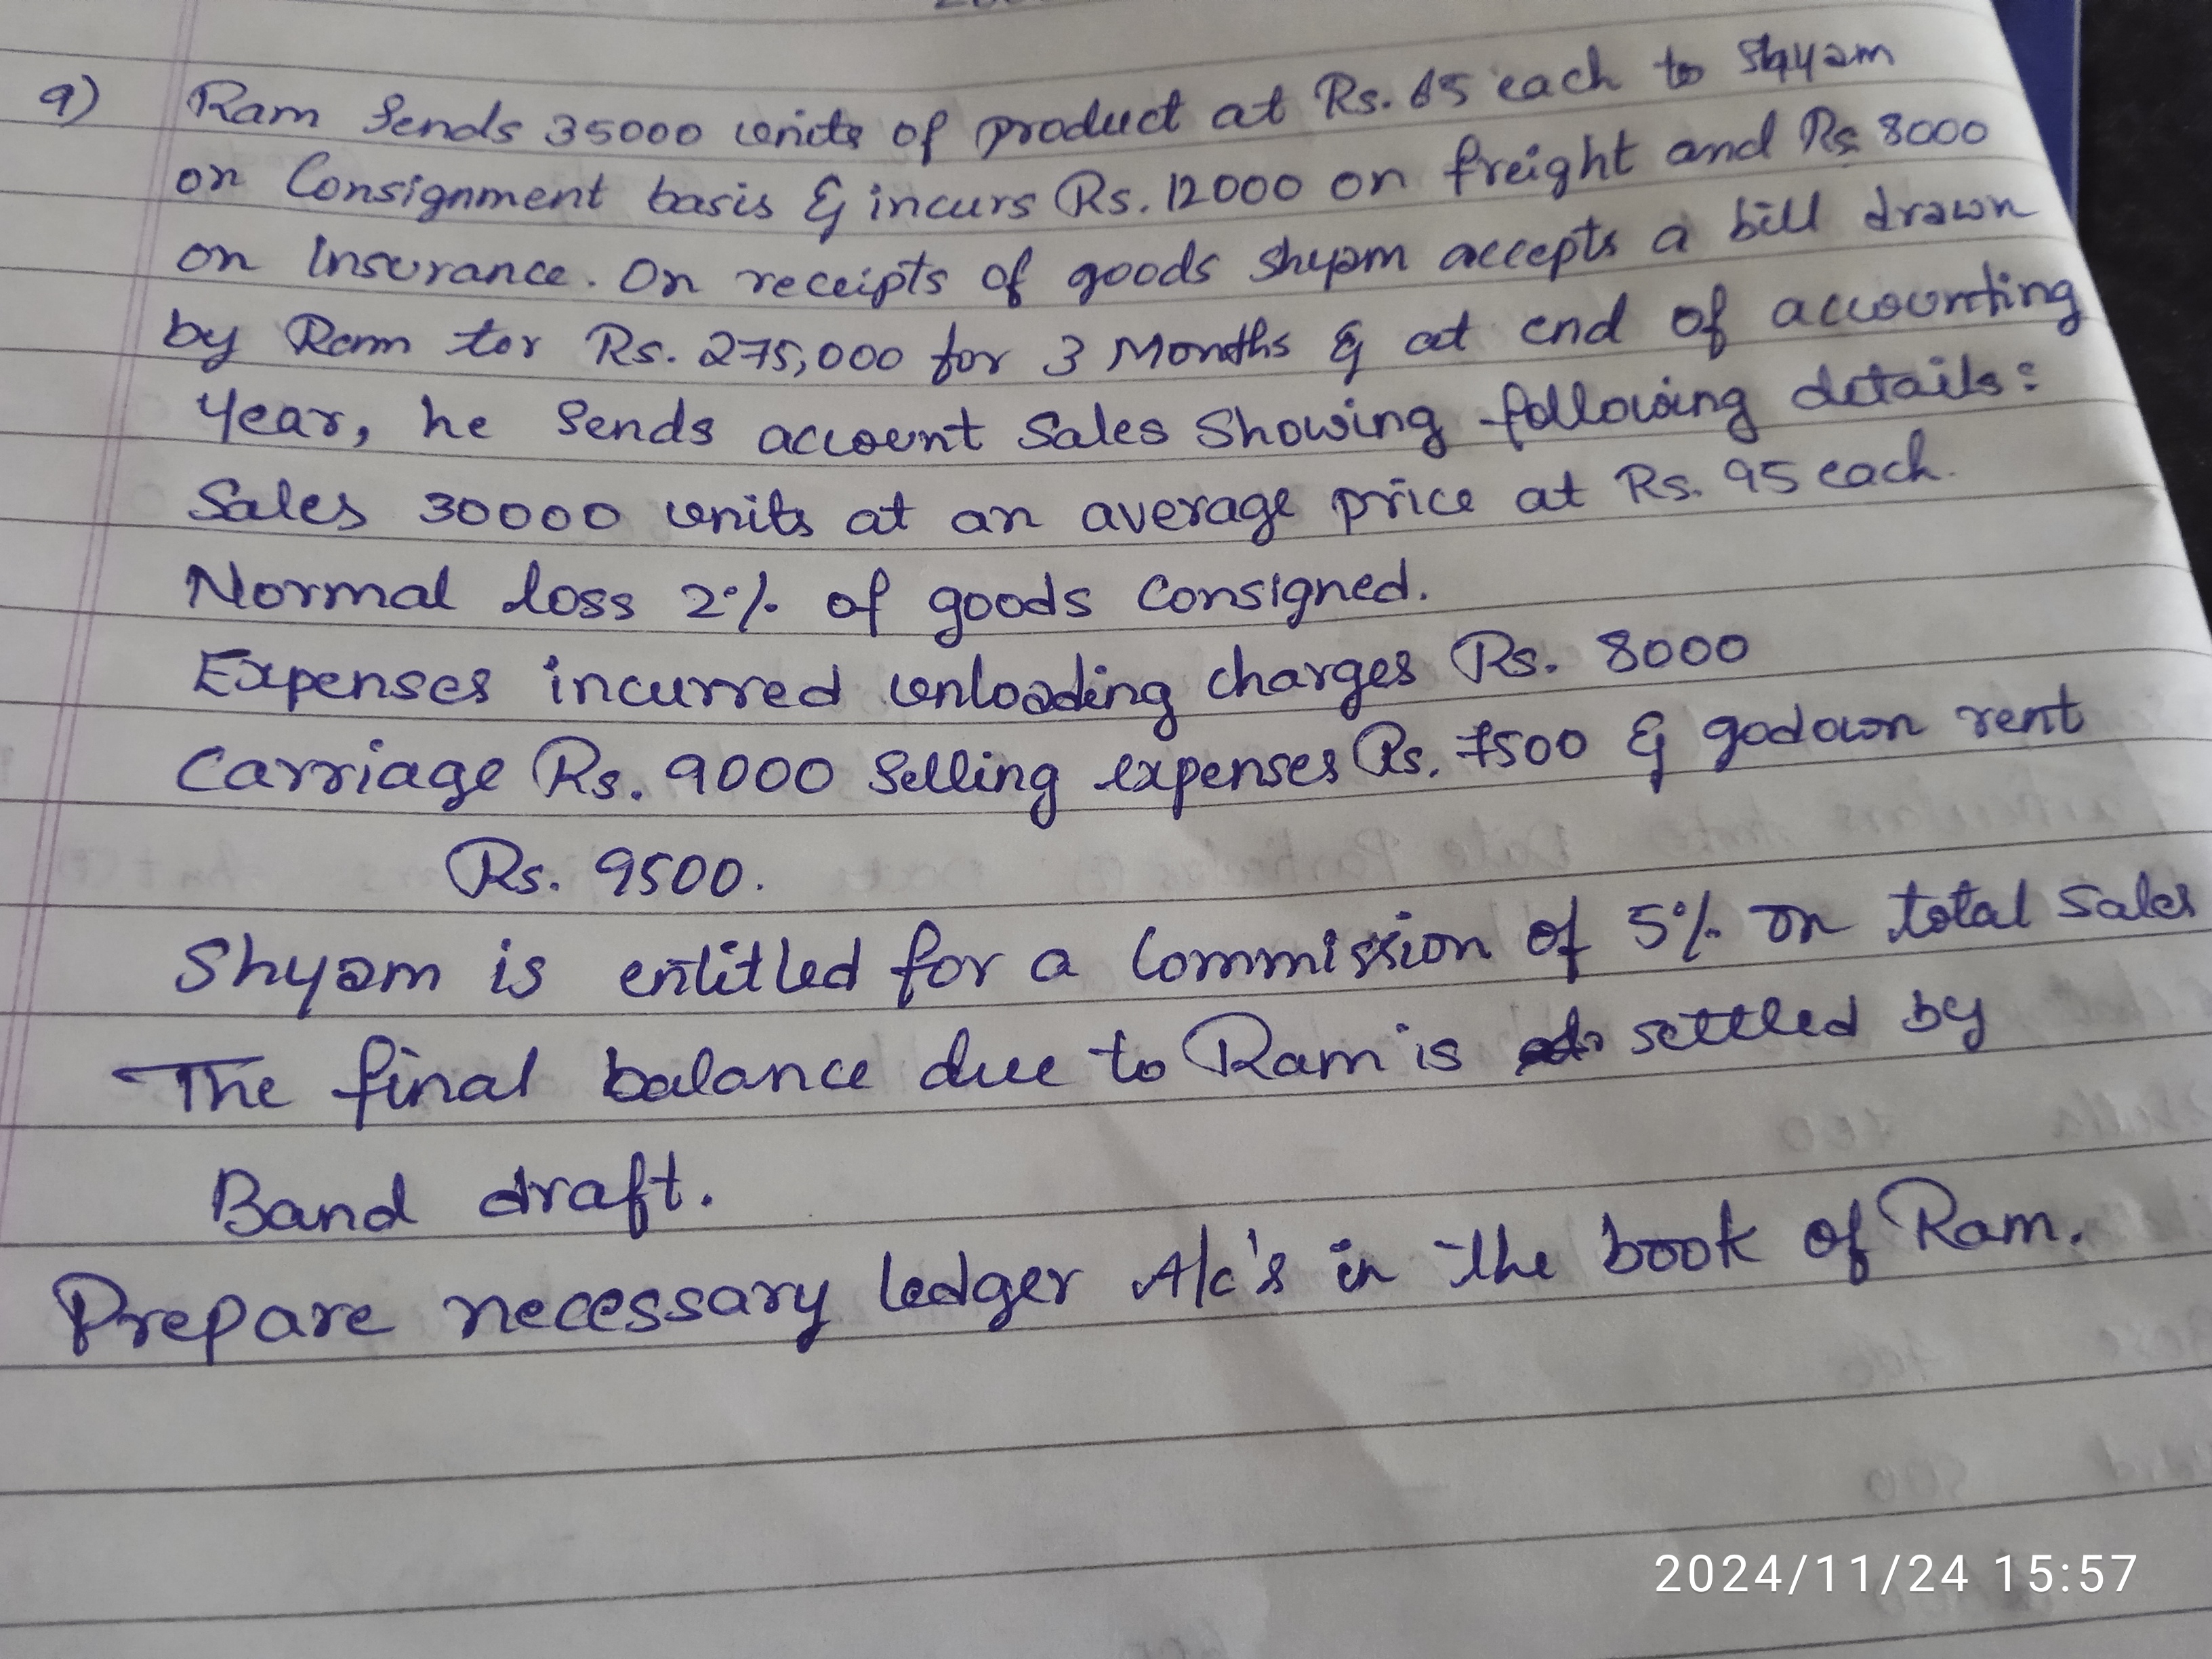 9) Ram Sends 35000 units of product at Rs. 65 each to Shyam
on Consignment basis & incurs Rs. 12000 on freight and Rs 8000
on Insurance. On receipts of goods Shyam accepts a bill drawn
by Ram for Rs. 275,000 for 3 Months & at end of accounting
Year, he Sends account Sales Showing following details:
Sales 30000 units at an average price at Rs. 95 each.
Normal loss 2% of goods Consigned.
Expenses incurred unloading charges Rs. 8000
Carriage Rs. 9000 Selling expenses Rs. 7500 & godown rent
Rs. 9500.
Shyam is entitled for a Commission of 5% on total Sales
The final balance due to Ram is settled by
Band draft.
Prepare necessary ledger A/c's in the book of Ram.
2024/11/24 15:57